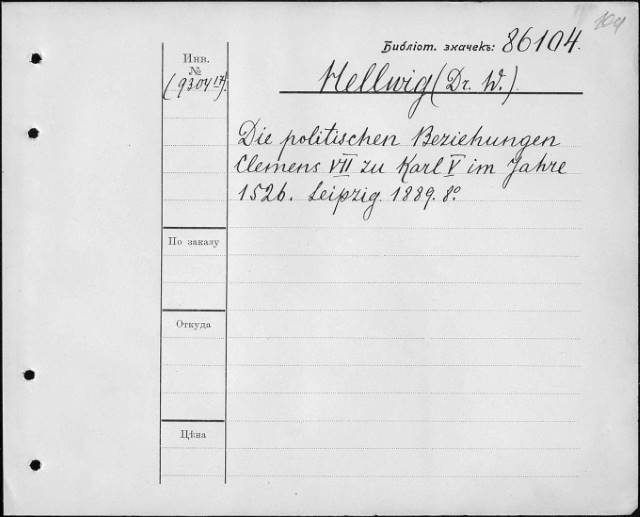 104
Библіот. значекъ: 86104.
Инв.
№
(9304 17).
Hellwig (Dr. W.)
Die politischen Beziehungen
Clemens VII zu Karl V im Jahre
1526. Leipzig. 1889. 8°.
По заказу
Откуда
Цѣна